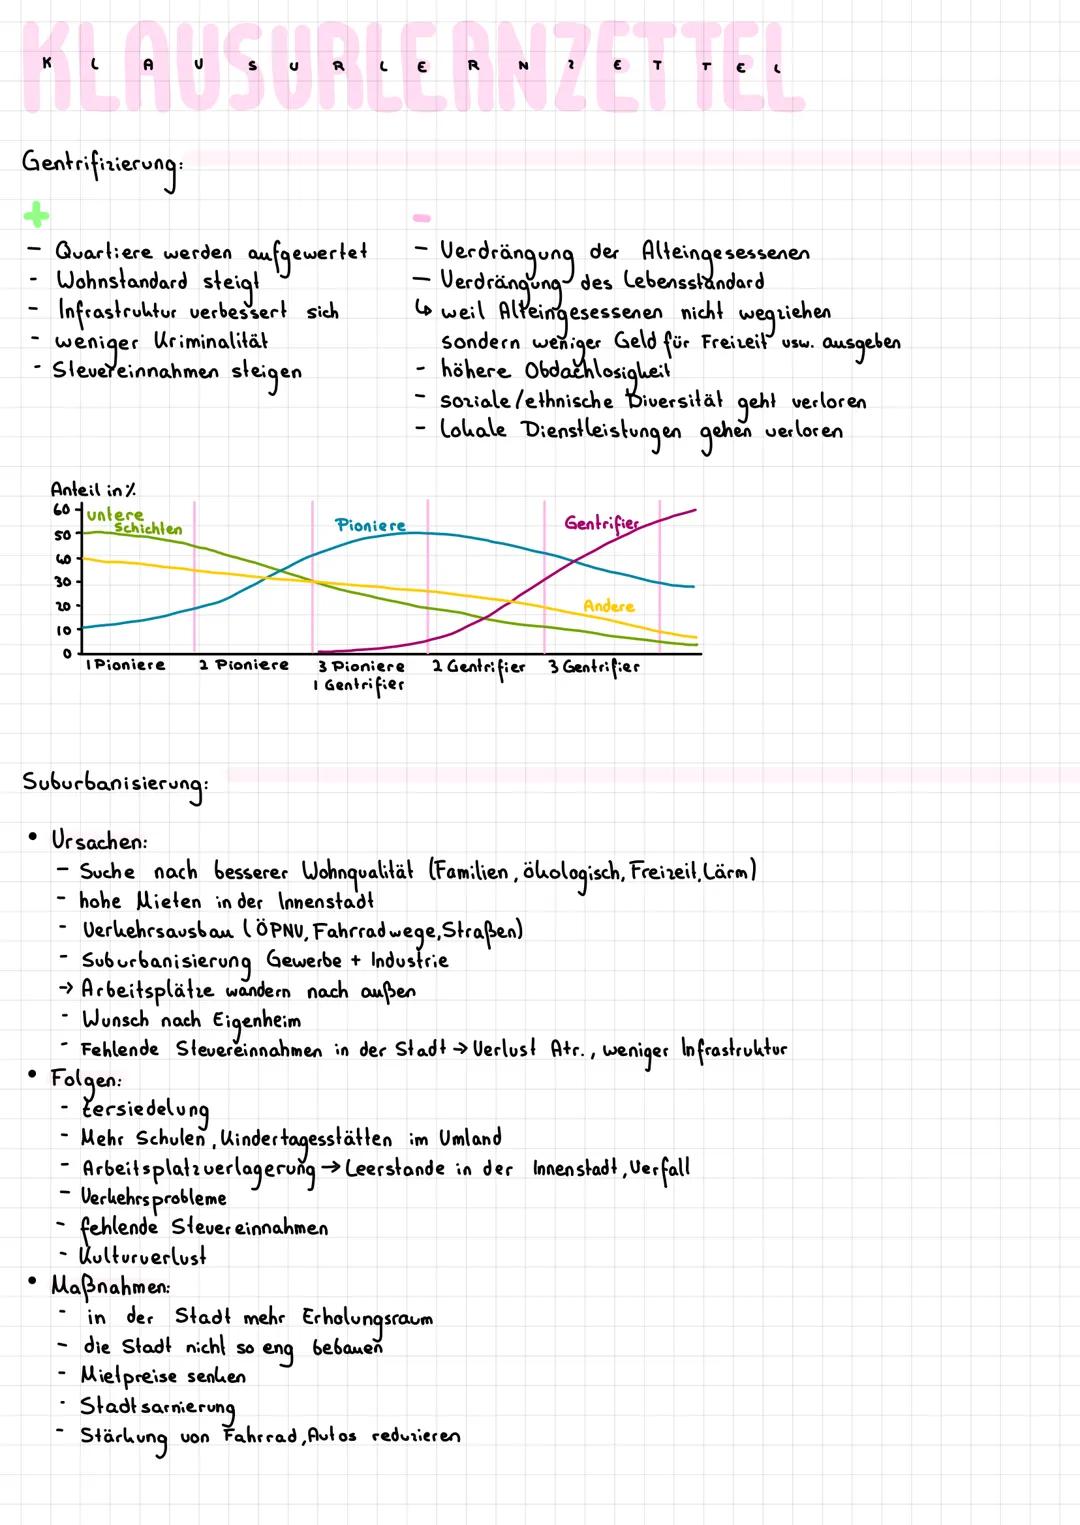 KLAUSURLERNZETTEL
K L A U S U R L E R N Z E T T E L
Gentrifizierung:
+
- Quartiere werden aufgewertet
- Wohnstandard steigt
- Infrastruktur verbessert sich
- weniger Kriminalität
- Steuereinnahmen steigen
-
- Verdrängung der Alteingesessenen
- Verdrängung des Lebensstandard
↳ weil Alteingesessenen nicht wegziehen
sondern weniger Geld für Freizeit usw. ausgeben
- höhere Obdachlosigkeit
- soziale/ethnische Diversität geht verloren
- Lokale Dienstleistungen gehen verloren
Anteil in %
60
50
40
30
20
10
0
untere
Schichten
Pioniere
Gentrifier
Andere
1 Pioniere
2 Pioniere
3 Pioniere
1 Gentrifier
2 Gentrifier
3 Gentrifier
Suburbanisierung:
• Ursachen:
- Suche nach besserer Wohnqualität (Familien, ökologisch, Freizeit, Lärm)
- hohe Mieten in der Innenstadt
- Verkehrsausbau (ÖPNV, Fahrradwege, Straßen)
- Suburbanisierung Gewerbe + Industrie
→ Arbeitsplätze wandern nach außen
- Wunsch nach Eigenheim
- Fehlende Steuereinnahmen in der Stadt → Verlust Atr., weniger Infrastruktur
• Folgen:
- Zersiedelung
- Mehr Schulen, Kindertagesstätten im Umland
- Arbeitsplatzverlagerung → Leerstande in der Innenstadt, Verfall
- Verkehrsprobleme
- fehlende Steuereinnahmen
- Kulturverlust
• Maßnahmen:
- in der Stadt mehr Erholungsraum
- die Stadt nicht so eng bebauen
- Mietpreise senken
- Stadtsarnierung
- Stärkung von Fahrrad, Autos reduzieren